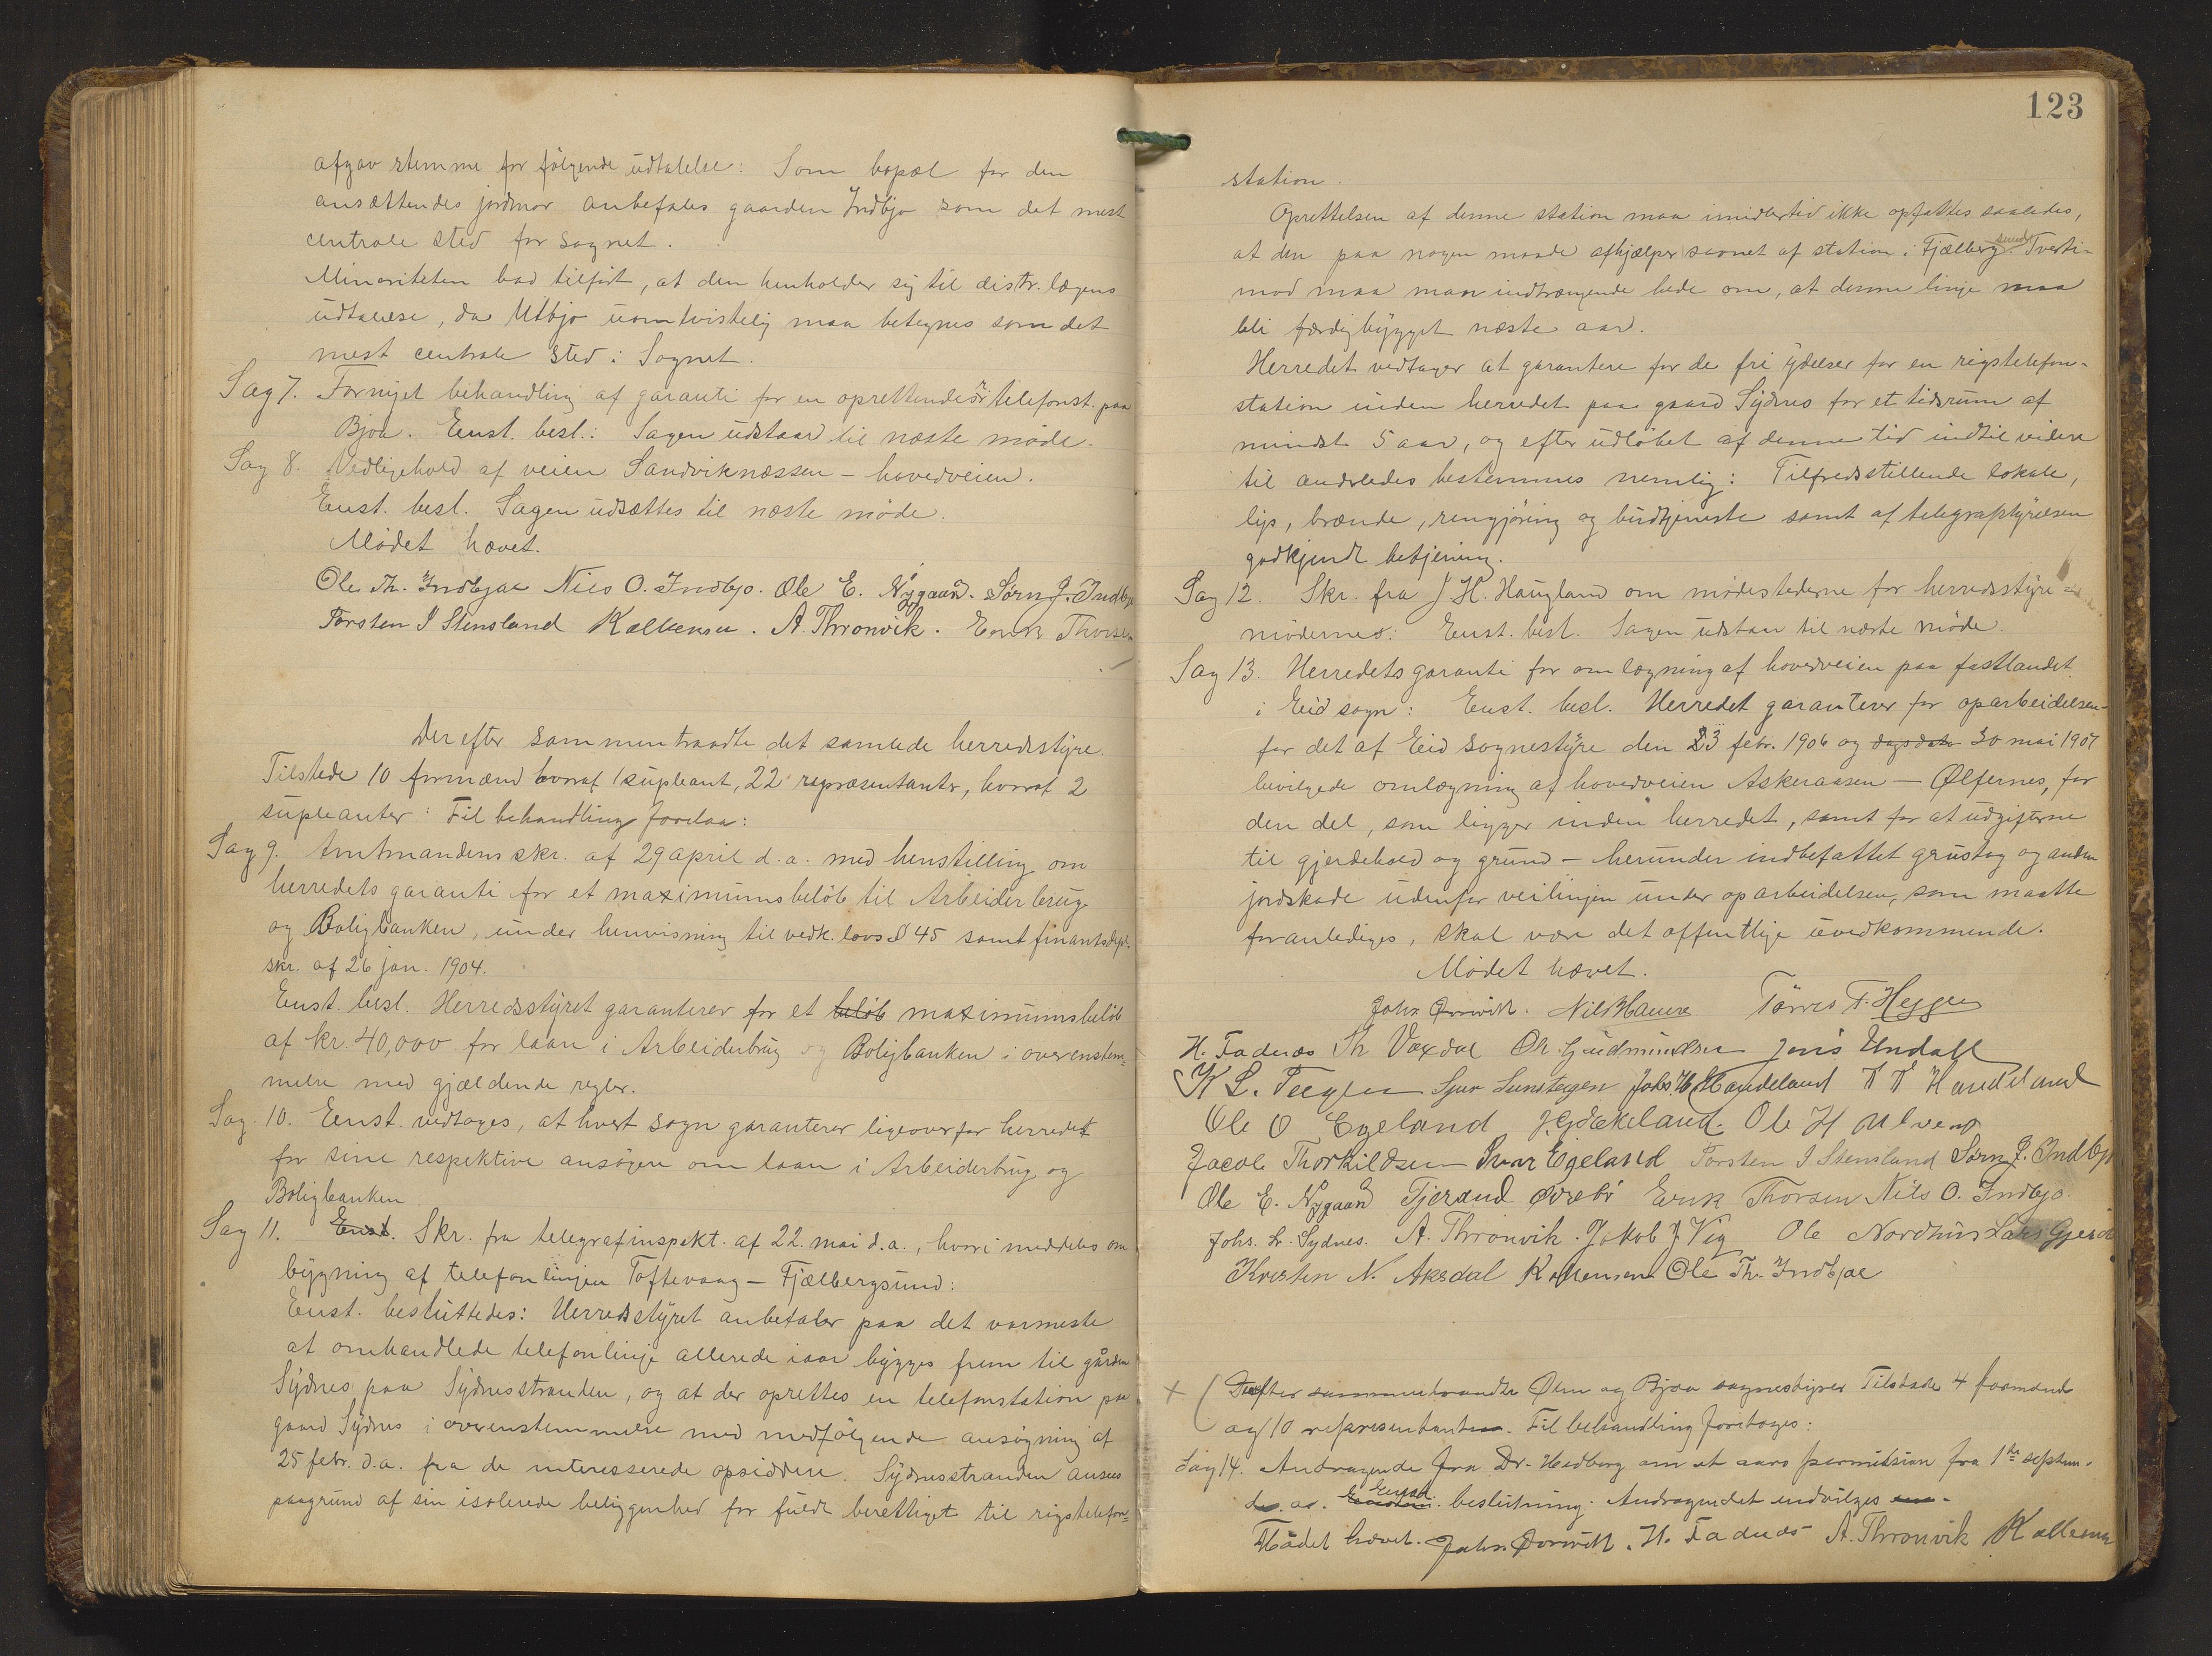 afgav stemme for følgende udtalelse: Som bopæl for den
ansættendes jordmor anbefales gaarden Indbjo som det mest
centrale sted for sognet.
Minoriteten bad tilført, at den henholder sig til distr. lægens
udtalelse, da Utbjo uomtvistelig maa betegnes som det
mest centrale sted i Sognet.
Sag 7. Fornyet behandling af garanti for en oprettendes telefonst. paa
Bjoa. Enst. besl.: Sagen udstaar til næste møde.
Sag 8. Vedligehold af veien Sandviknæssen - hovedveien.
Enst. besl. Sagen udsættes til næste møde.
Mødet hævet.
Ole Th. Indbjoe Nils O. Indbjo. Ole E. Nygaard. Sørn J. Indbjo
Torsten I Stensland Kallensen. A. Thronvik. Erik Thorsen
Derefter sammentraadte det samlede herredsstyre.
Tilstede 10 formænd hvoraf 1 supleant, 22 repræsentanter, hvoraf 2
supleanter: Til behandling forelaa:
Sag 9. Amtmandens skr. af 29 april d.a. med henstilling om
herredets garanti for et maximumsbeløb til Arbeiderbrug
og Boligbanken, under henvisning til vedk. lovs § 45 samt finantsdept.
skr. af 26 jan. 1904.
Enst. besl. Herredsstyret garanterer for et beløb maximumsbeløb
af kr. 40,000 for laan i Arbeiderbrug og Boligbanken i overenstem=
melse med gjældende regler.
Sag 10. Enst. vedtages, at hvert sogn garanterer ligeoverfor herredet
for sine respektive ansøgere om laan i Arbeiderbrug og
Boligbanken
Sag 11. Enst. Skr. fra telegrafinspekt. af 22. mai d.a., hvori meddeles om
bygning af telefonlinjen Toftevaag - Fjælbergsund:
Enst. besluttedes: Herredsstyret anbefaler paa det varmeste
at omhandlede telefonlinje allerede iaar bygges frem til gården
Sydnes paa Sydnesstranden, og at der oprettes en telefonstation paa
gaard Sydnes i overenstemmelse med medfølgende ansøgning af
25 febr. d.a. fra de interesserede opsiddere. Sydnesstranden ansees
paagrund af sin isolerede beliggenhed for fuldt berettiget til rigstelefon=
123
station.
Oprettelsen af denne station maa imidlertid ikke opfattes saaledes,
at den paa nogen maade afhjælper savnet af station i Fjælberg sund. Tverti-
mod maa man indtrængende bede om, at denne linje maa
bli færdigbygget næste aar.
Herredet vedtager at garantere for de fri ydelser for en rigstelefon-
station inden herredet paa gaard Sydnes for et tidsrum af
mindst 5 aar, og efter udløbet af denne tid indtil videre
til anderledes bestemmes nemlig: Tilfredsstillende lokale,
lys, brænde, rengjøring og budtjeneste samt af telegrafstyrelsen
godkjendt betjening.
Sag 12. Skr. fra J H. Haugland om mødestederne for herredsstyre=
mødernes: Enst. besl. Sagen udstaa til næste møde.
Sag 13. Herredets garanti for omlægning af hovedveien paa fastlandet
i Eid sogn: Enst. besl. Herredet garanterer for oparbeidelsen
for det af Eid sognestyre den 23 febr. 1906 og dagsdato 30 mai 1907
bevilgede omlægning af hovedveien Askeraasen - Ølfernes, for
den del, som ligger inden herredet, samt for at udgifterne
til gjerdehold og grund - herunder indbefattet grustag og anden
jordskade udenfor veilinjen under oparbeidelsen, som maatte
foranlediges, skal være det offentlige uvedkommende.
Mødet hævet.
Johs Ørnvik. Nils Hauere Tørres T. Heggen
H. Fadnes Th Vaxdal Ch. Gudmundsen Jens Undall
K L. Teigen Sjur Lunstegen Johs. H. Handeland T T Handeland
Ole O Egeland J. Grækeland. Ole H Alvens
Jacob Thorkildsen Ivar Eigeland Torsten I Stensland Sørn J. Indbjo
Ole E. Nygaard Tjerand Øvrebø Erik Thorsen Nils O. Indbjo.
Johs. Sr. Sydnes. A. Thronvik. Jakob J Vig Ole Nordhus Lars Gjerde
Kristen N. Aksdal Kallensen Ole Th. Indbjoe
+ ( Derefter sammentraadte Ølen og Bjoa sognestyrer Tilstede 4 formænd
og 10 repræsentanter. Til behandling foretoges:
Sag 14. Andragende fra Dr. Hedberg om et aars permission fra 1ste septem.
d. aa. Enst. beslutning. Andragendet indvilges
Mødet hævet. Johs. Ørnvik. H. Fadnes A. Thronvik Kallensen